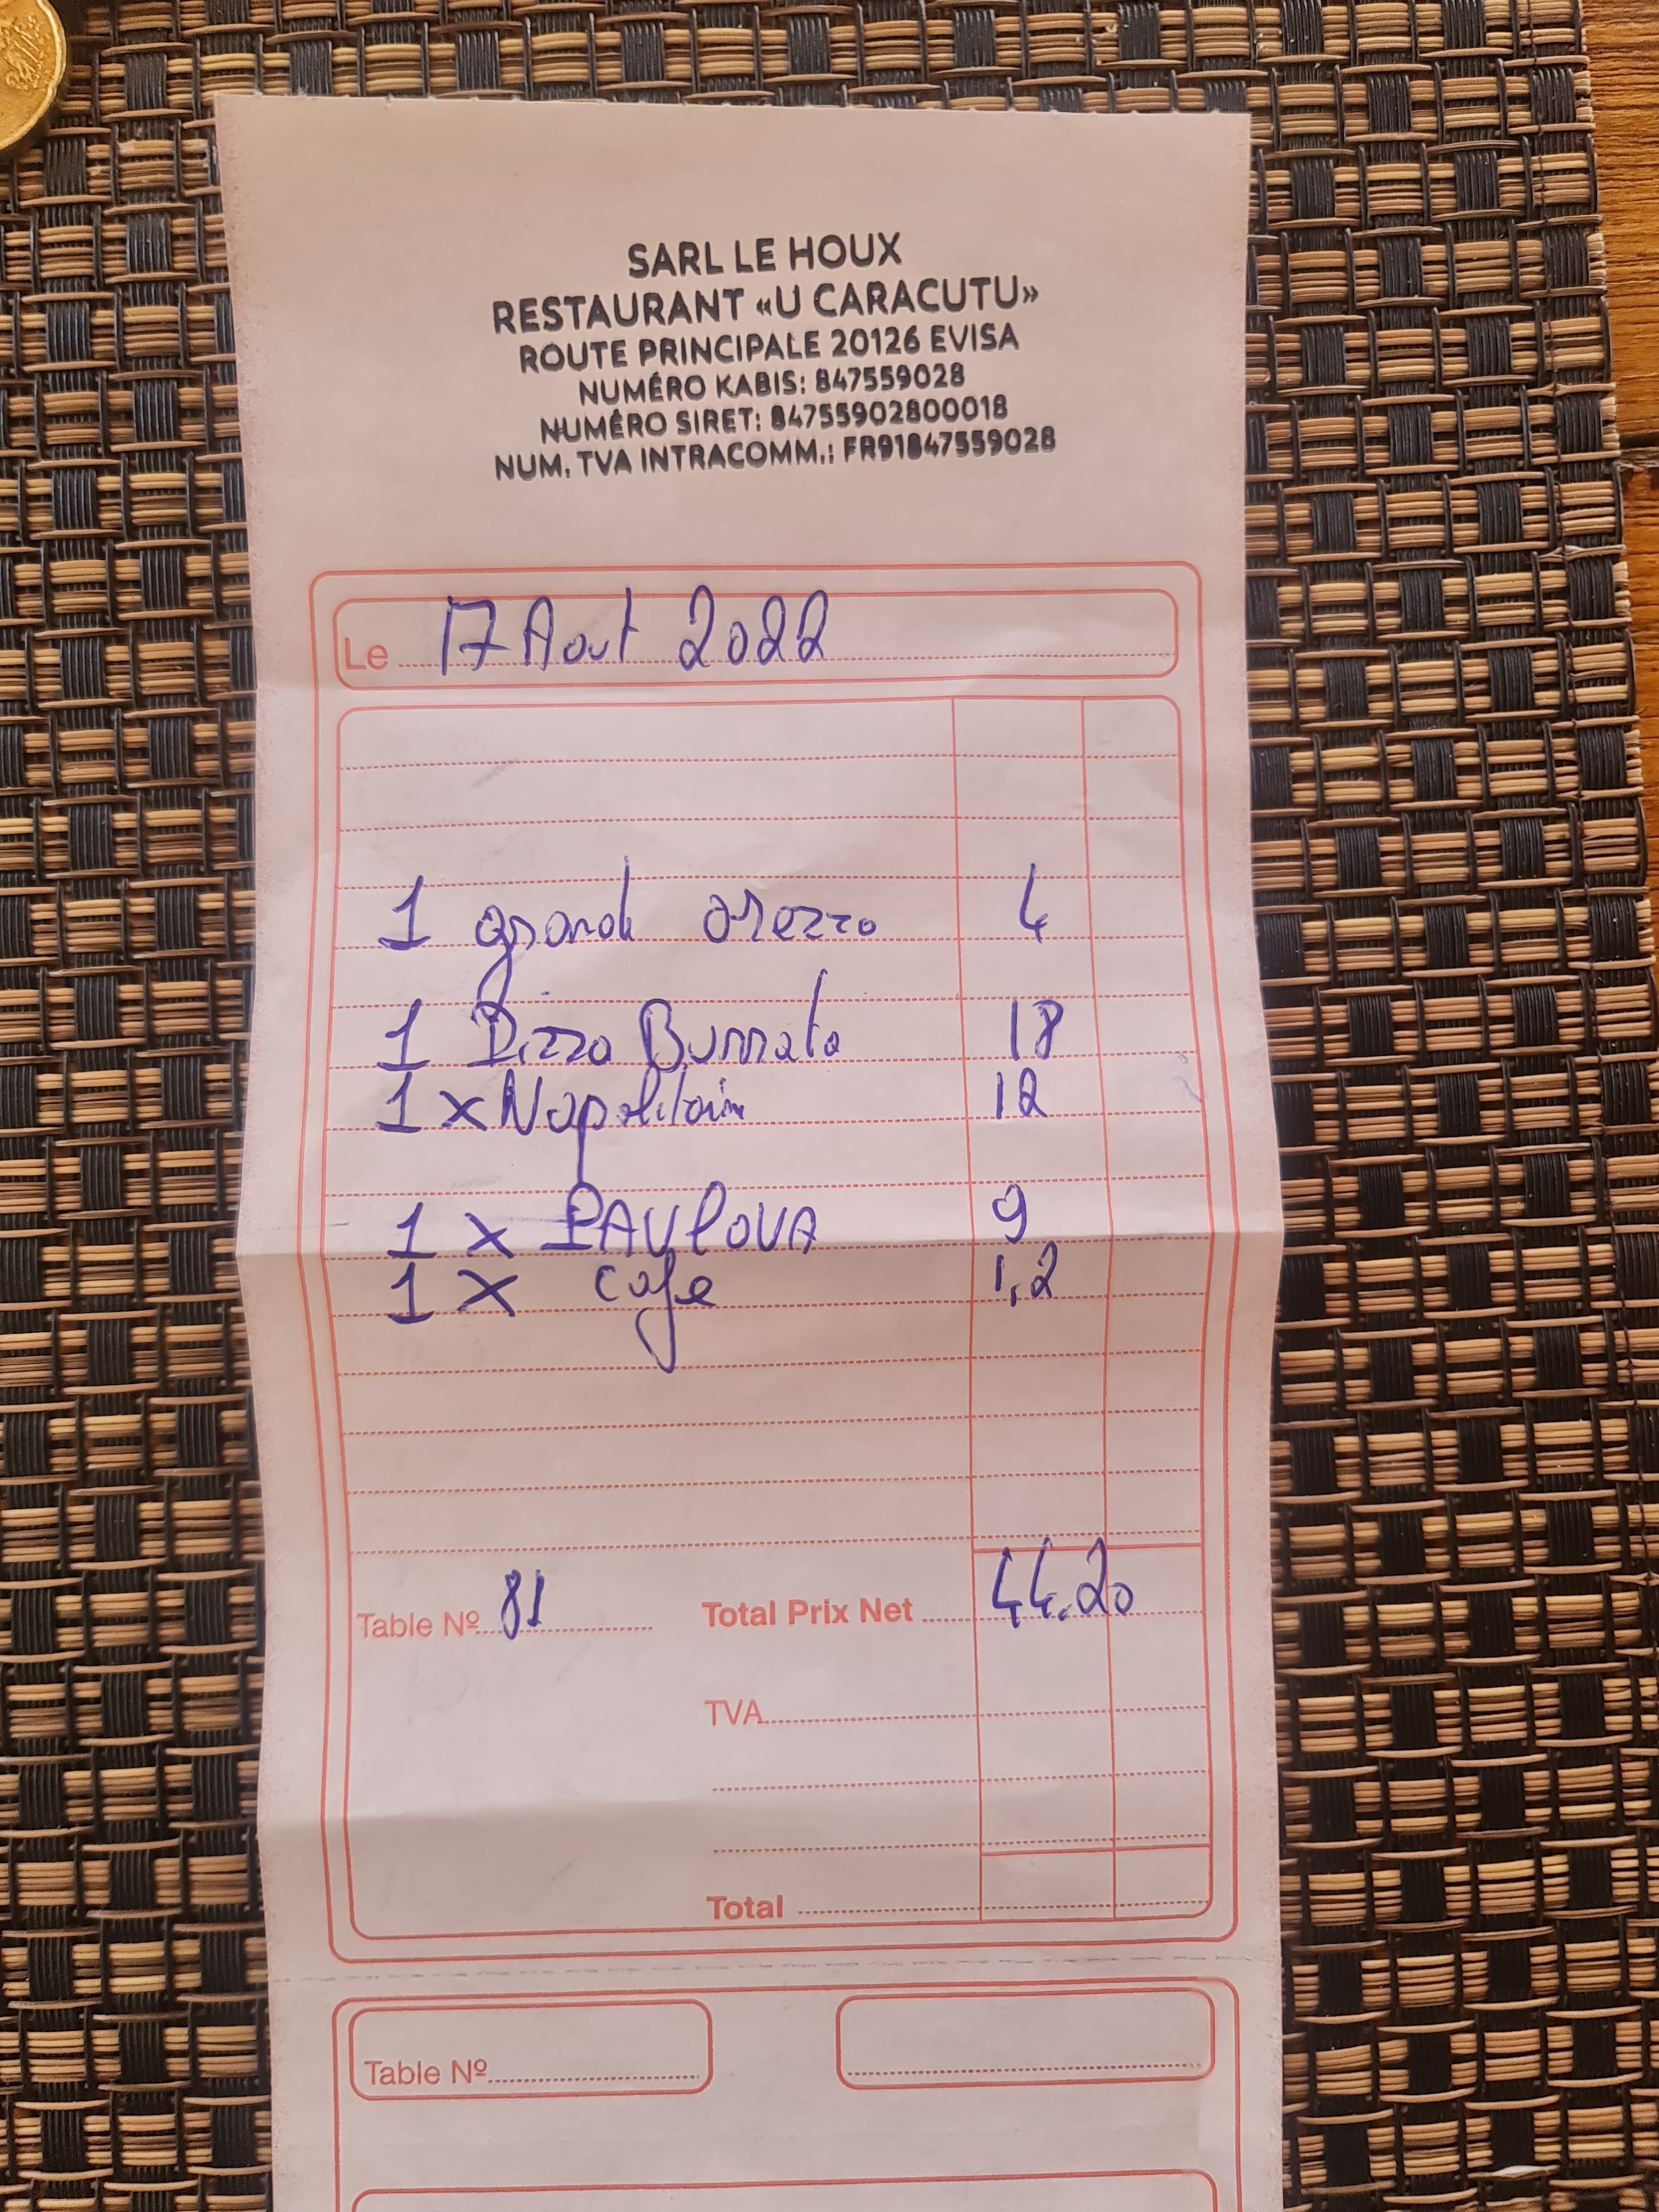 SARL LE HOUX
RESTAURANT «U CARACUTU»
ROUTE PRINCIPALE 20126 EVISA
NUMÉRO KABIS: 847559028
NUMÉRO SIRET: 84755902800018
NUM. TVA INTRACOMM.: FR91847559028
Le 17 Aout 2022
1 grande orezza 4
1 Pizza Burrata 18
1 x Napolitaine 12
1 x PAVLOVA 9
1 x cafe 1,2
Table Nº 81 Total Prix Net 44.20
TVA
Total
Table Nº